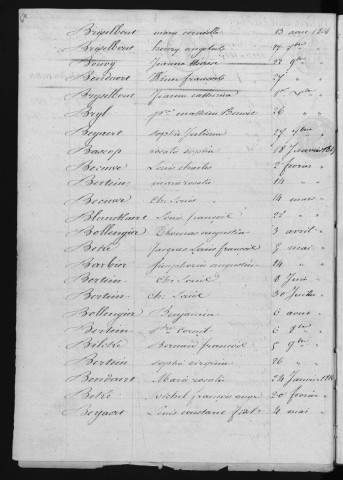 Briselbout marie cornille 13 aout 1814
Briselbout henry angelus 17 7bre
Bouvy Jeanne 22 9bre "
Bondvart Winoc francois 27 " "
Brysselbout Jeanne catherine
Bryl pre mathieu Benoit 26 " "
Beyaert sophie Julienne 27 "
Bascop rosalie sophie 18 Janvier 1815
Becuwe Louis charles 2 fevrier "
Bertein marie rosalie 14 " "
Becuwe chs Louis 14 mars "
Blanckaert Louis francois 22 " "
Bollengier Thomas augustin 3 avril "
Beké Jacques Louis francois 9 mai "
Barbier augustin 14 " "
Bertein chs Louis 8 Juin "
Bertein chs Louis 30 Juillet "
Bollengier Benjamin 6 aout "
Bertein 6 8bre "
Bernard francois 5 9bre "
Bertein sophie virginie 26 " "
Bondvart Marie rosalie 24 Janvier 1816
Beké francois 20 fevrier "
Beyaert Louis constant fidel 4 mai "